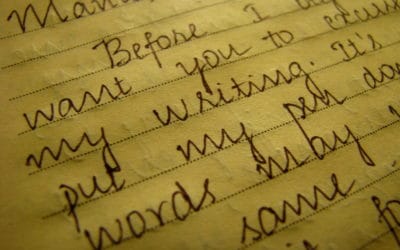 Before I
want you to excuse
my writing. It's
put my pen
words in by
same.